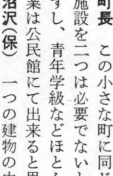 町長　この小さな町に同じ
施設を二つは必要でない
すし、青年学級などほとん
業は公民館にて出来ると思
沼沢（保）　一つの建物の中